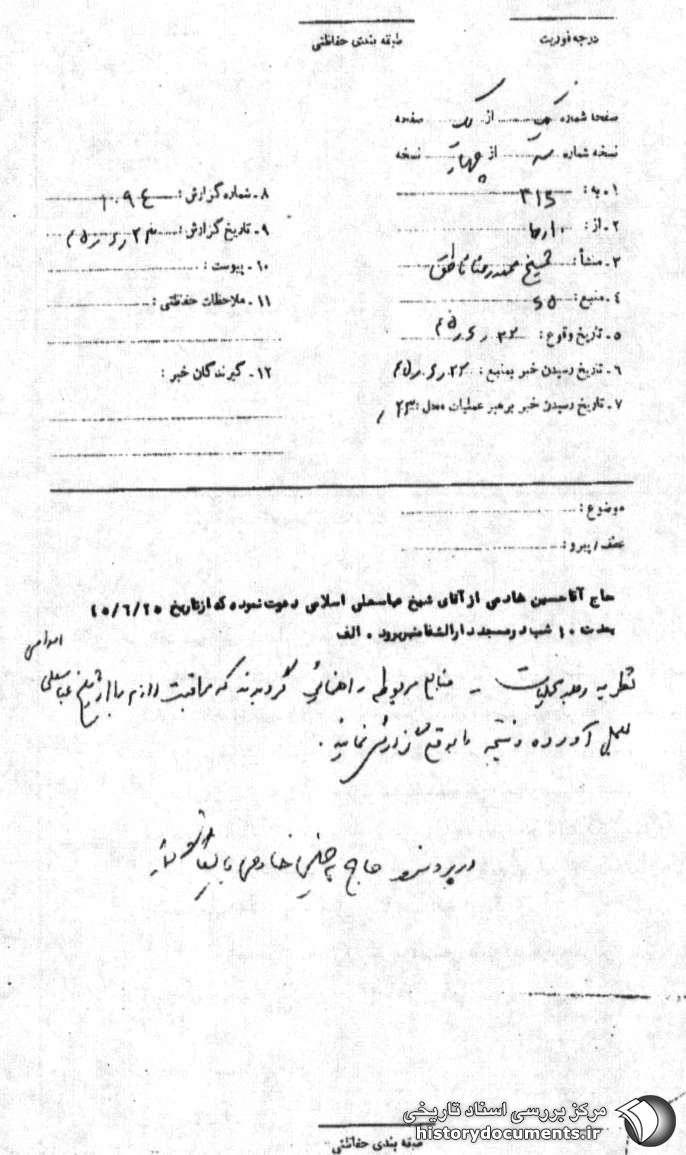 درجه فوریت
طبقه بندی حفاظتی
صفحا شماره یک از یک صفحه
نسخه شماره سه از چهار نسخه
۱ - به : ۳۱۵
۲ - از :
۳ - منشأ : شیخ محمدرضا ناطق
۴ - منبع :
۵ - تاریخ وقوع :
۶ - تاریخ رسیدن خبر بمنبع :
۷ - تاریخ رسیدن خبر برهبر عملیات محل : ۲۳
۸ - شماره گزارش : ۱۰۹۴
۹ - تاریخ گزارش :
۱۰ - پیوست :
۱۱ - ملاحظات حفظتی :
۱۲ - گیرندگان خبر :
موضوع :
عطف / پیرو :
حاج آقاحسین خادمی از آقای شیخ عباسعلی اسلامی دعوت نموده که ازتاریخ ۴۵/۶/۲۵
بمدت ۱۰ شب در مسجد دارالشفا منبر برود ۰ الف
نظریه رهبر عملیات - منابع مربوطه راهنمائی گردیدند که مراقبت لازم را از شیخ عباسعلی
اسلامی
بعمل آورده و نتیجه را به موقع گزارش نمایند .
در پرونده حاج
مرکز بررسی اسناد تاریخی
historydocuments.ir
طبقه بندی حفاظتی